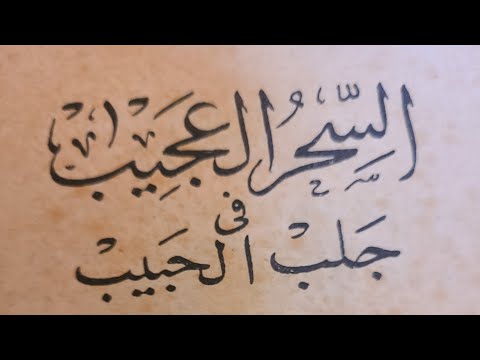 السِّحْرُ العَجِيْبْ
فى
جَلْبْ الحَبيْبْ